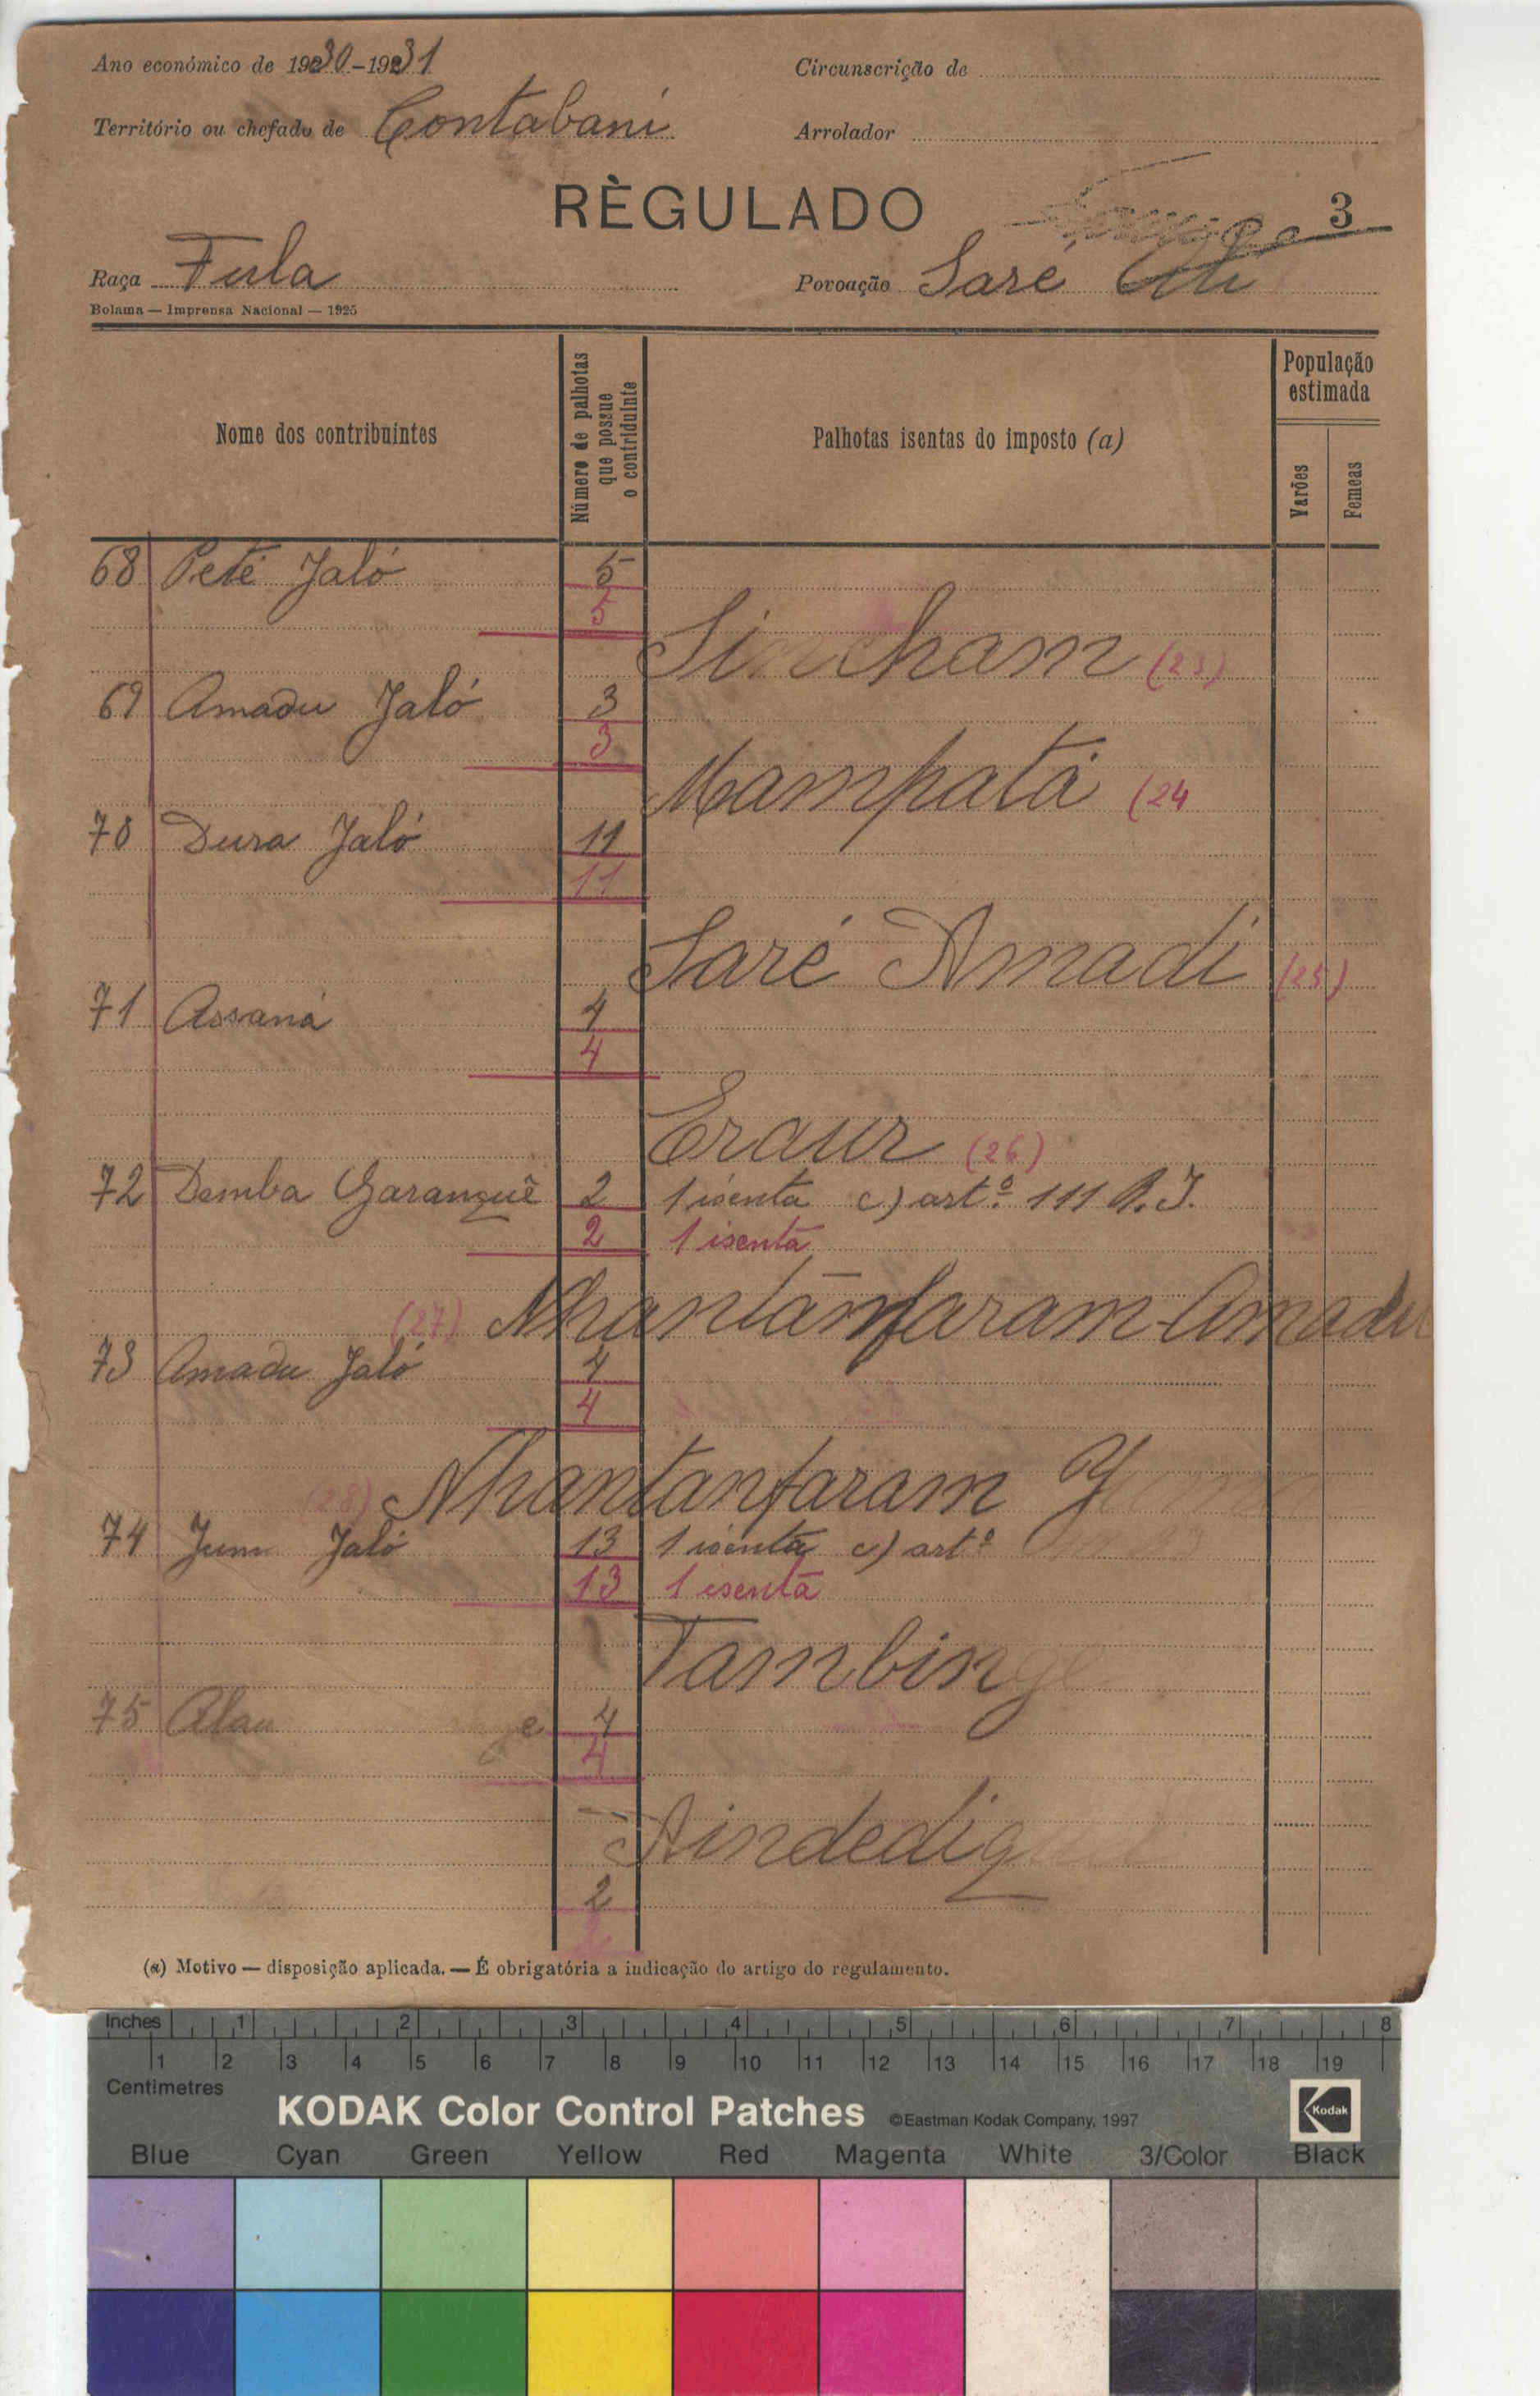 Ano económico de 1930-1931
Circunscrição de
Território ou chefado de Contabani
Arrolador
RÈGULADO
3
Raça Fula
Povoação Saré
Bolama — Imprensa Nacional — 1925
Nome dos contribuintes
Número de palhotas que possue o contriduinte
Palhotas isentas do imposto (a)
População estimada
Varões
Femeas
68 Peté Jaló 5
5
Sincham (23)
69 Amadu Jaló 3
3
Mampatá (24
70 Dura Jaló 11
11
Saré Amadi (25)
71 Assaná 4
4
Eraur (26)
72 Demba Garanquê 2 1 isenta c) artº. 111 R.I.
2 1 isenta
(27) Nhantanfaram-Amadu
73 Amadu Jaló 4
4
(28) Nhantanfaram
74 Jaló 13 1 isenta c) artº
13 1 isenta
Tambinge
75 4
4
2
(a) Motivo — disposição aplicada. — É obrigatória a indicação do artigo do regulamento.
Inches 1 2 3 4 5 6 7 8
1 2 3 4 5 6 7 8 9 10 11 12 13 14 15 16 17 18 19
Centimetres
KODAK Color Control Patches ©Eastman Kodak Company, 1997 Kodak
Blue Cyan Green Yellow Red Magenta White 3/Color Black